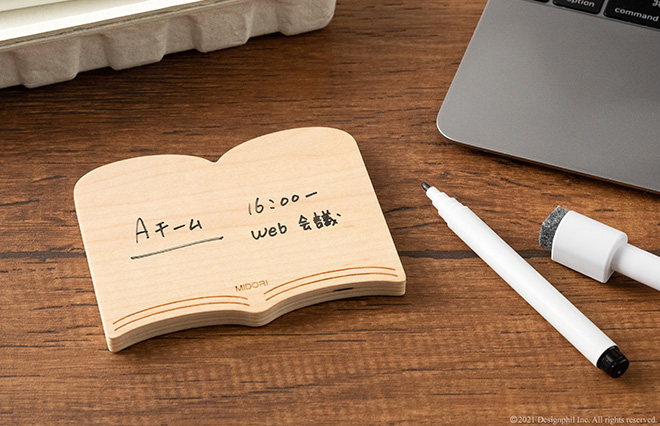 Aチーム
16:00ー
Web 会議
MIDORI
option
command
©2021 Designphil Inc. All rights reserved.